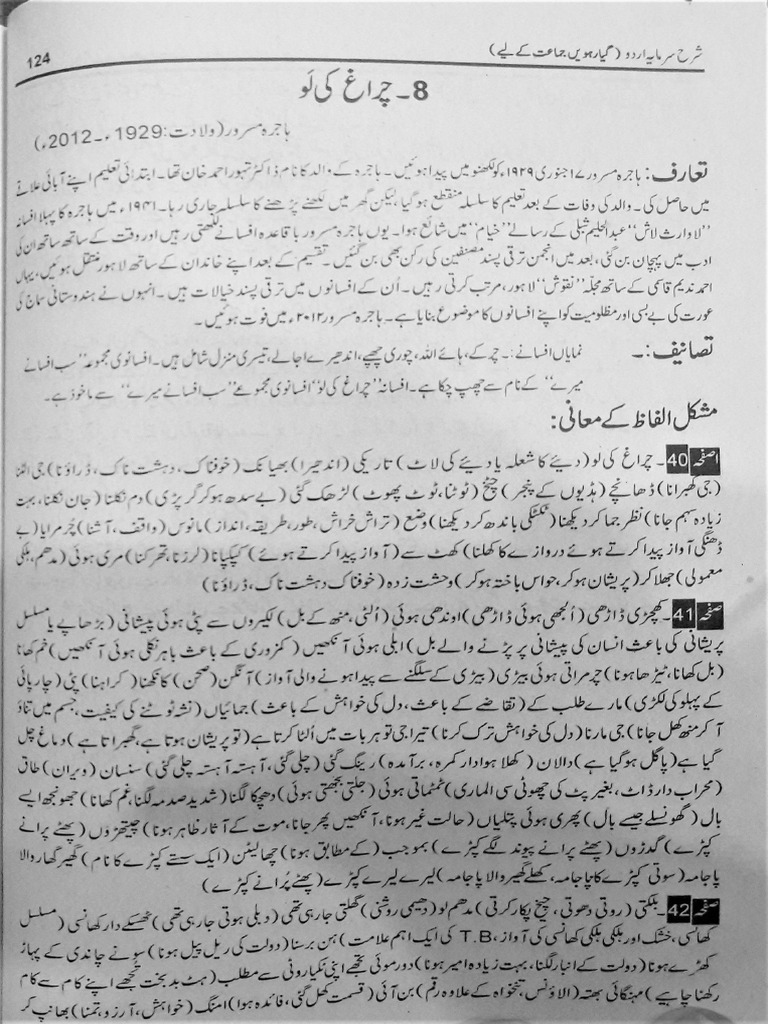 شرح سرمایہ اردو (گیارہویں جماعت کے لیے)
124
8۔ چراغ کی لَو
ہاجرہ مسرور (ولادت: 1929ء۔2012ء)
تعارف: ہاجرہ مسرور ۱۷ جنوری ۱۹۲۹ء کو لکھنو میں پیدا ہوئیں۔ ہاجرہ کے والد کا نام ڈاکٹر تہور احمد خان تھا۔ ابتدائی تعلیم اپنے آبائی علاقے
میں حاصل کی۔ والد کی وفات کے بعد تعلیم کا سلسلہ منقطع ہو گیا، لیکن گھر میں لکھنے پڑھنے کا سلسلہ جاری رہا۔ ۱۹۴۱ء میں ہاجرہ کا پہلا افسانہ
"لاوارث لاش" عبدالحلیم شبلی کے رسالے "خیام" میں شائع ہوا۔ یوں ہاجرہ مسرور باقاعدہ افسانے لکھتی رہیں اور وقت کے ساتھ ساتھ ان کی
ادب میں پہچان بن گئی، بعد میں انجمن ترقی پسند مصنفین کی رکن بھی بن گئیں۔ تقسیم کے بعد اپنے خاندان کے ساتھ لاہور منتقل ہوئیں، یہاں
احمد ندیم قاسمی کے ساتھ مجلّہ "نقوش" لاہور، مرتب کرتی رہیں۔ اُن کے افسانوں میں ترقی پسند خیالات ہیں۔ انہوں نے ہندوستانی سماج کی
عورت کی بے بسی اور مظلومیت کو اپنے افسانوں کا موضوع بنایا ہے۔ ہاجرہ مسرور ۲۰۱۲ء میں فوت ہوئیں۔
تصانیف:۔ نمایاں افسانے:۔ چرکے، ہائے اللہ، چوری چھپے، اندھیرے اجالے، تیسری منزل شامل ہیں۔ افسانوی مجموعہ "سب افسانے
میرے" کے نام سے چھپ چکا ہے۔ افسانہ "چراغ کی لَو" افسانوی مجموعے "سب افسانے میرے" سے ماخوذ ہے۔
مشکل الفاظ کے معانی:
صفحہ 40۔ چراغ کی لَو (دیئے کا شعلہ یا دیئے کی لاٹ) تاریکی (اندھیرا) بھیانک (خوفناک، دہشت ناک، ڈراؤنا) جی الٹنا
(جی گھبرانا) ڈھانچے (ہڈیوں کے پنجر) چٹخ (ٹوٹنا، ٹوٹ پھوٹ) لڑھک گئی (بے سدھ ہو کر گر پڑی) دم نکلنا (جان نکلنا، بہت
زیادہ سہم جانا) نظر جما کر دیکھنا (ٹکٹکی باندھ کر دیکھنا) وضع (تراش خراش، طور، طریقہ، انداز) مانوس (واقف، آشنا) چُرمرایا (بے
ڈھنگی آواز پیدا کرتے ہوئے دروازے کا کھلنا) کھٹ سے (آواز پیدا کرتے ہوئے) کپکپانا (لرزنا، تھرکنا) مری ہوئی (مدھم، ہلکی
معمولی) جھلا کر (پریشان ہو کر، حواس باختہ ہو کر) وحشت زدہ (خوفناک دہشت ناک، ڈراؤنا)
صفحہ 41۔ کھچڑی ڈاڑھی (اُلجھی ہوئی ڈاڑھی) اوندھی ہوئی (اُلٹی، منھ کے بل) لکیروں سے پٹی ہوئی پیشانی (بڑھاپے یا مسلسل
پریشانی کی باعث انسان کی پیشانی پر پڑنے والے بل) ابلی ہوئی آنکھیں (کمزوری کے باعث باہر نکلی ہوئی آنکھیں) خم کھانا
(بل کھانا، ٹیڑھا ہونا) چرمراتی ہوئی بیڑی (بیڑی کے سلگنے سے پیدا ہونے والی آواز) آنگن (صحن) کانکھنا (کراہنا) پٹی (چارپائی
کے پہلو کی لکڑی) مارے طلب کے (تقاضے کے باعث، دل کی خواہش کے باعث) جمائیاں (نشہ ٹوٹنے کی کیفیت، جسم میں تناؤ
آ کر منھ کھل جانا) جی مارنا (دل کی خواہش ترک کرنا) تیرا جی تو ہر بات میں اُلٹا کرتا ہے (تو پریشان ہوتا ہے، گھبراتا ہے) دماغ چل
گیا ہے (پاگل ہو گیا ہے) دالان (کھلا ہوا دار کمرہ، برآمدہ) رینگ گئی (چلی گئی، آہستہ آہستہ چلی گئی) سنسان (ویران) طاق
(محراب دار ڈاٹ، بغیر پٹ کی چھوٹی سی الماری) ٹمٹماتی ہوئی (جلتی بجھتی ہوئی) دھچکا لگنا (شدید صدمہ لگنا، غم کھانا) جھونجھ ایسے
بال (گھونسلے جیسے بال) پھری ہوئی پتلیاں (حالت غیر ہونا، آنکھیں پھر جانا، موت کے آثار ظاہر ہونا) چیتھڑوں (پھٹے پرانے
کپڑے) گدڑوں (پھٹے پرانے پیوند لگے کپڑے) بموجب (کے مطابق ہونا) چھالیٹن (ایک سستے کپڑے کا نام) گھیر گھار والا
پاجامہ (سوتی کپڑے کا پاجامہ، کھلے گھیر والا پاجامہ) لیرے لیرے کپڑے (پھٹے پُرانے کپڑے)
صفحہ 42۔ بلکتی (روتی دھوتی، چیخ پکار کرتی) مدھم لو (دھیمی روشنی) گھلتی جا رہی تھی (دبلی ہوتی جا رہی تھی) ٹھسکے دار کھانسی (مسلسل
کھانسی، خشک اور ہلکی ہلکی کھانسی کی آواز، T.B کی ایک اہم علامت) ہن برسنا (دولت کی ریل پیل ہونا) سونے چاندی کے پہاڑ
کھڑے ہونا (دولت کے انبار لگنا، بہت زیادہ امیر ہونا) دور موئی تجھے اپنی ٹکیا روٹی سے مطلب (ہٹ بدبخت تجھے اپنے کام سے کام
رکھنا چاہیے) مہنگائی بھتہ (الاؤنس، تنخواہ کے علاوہ رقم) بن آئی (قسمت کھل گئی، فائدہ ہوا) امنگ (خواہش، آرزو، تمنا) بھانپ کر